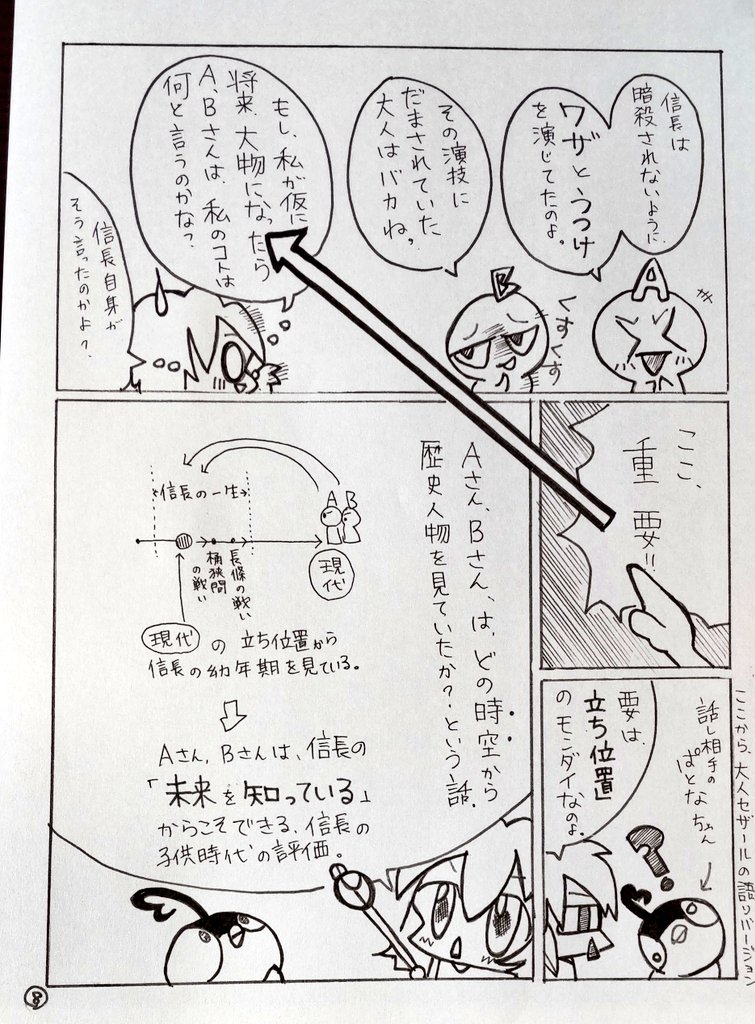 信長は
暗殺されないように、
ワザとうつけ
を演じてたのよ。
その演技に
だまされていた
大人はバカね。
もし、私が仮に
将来、大物になったら
A、Bさんは、私のコトは
何と言うのかな?
信長自身が
そう言ったのかよ?
A
B
くすくす
ここ、
重要!!
ここから、大人セザールの語りバージョン
話し相手の
ぱとなちゃん
要は、
「立ち位置」
のモンダイなのよ。
?
Aさん、Bさん、は、どの時空から
歴史人物を見ていたか?という話。
信長の一生
A B
現代
長篠の戦い
桶狭間
の戦い
現代の立ち位置から
信長の幼年期を見ている。
Aさん、Bさんは、信長の
「未来を知っている」
からこそできる、信長の
子供時代の評価。
8